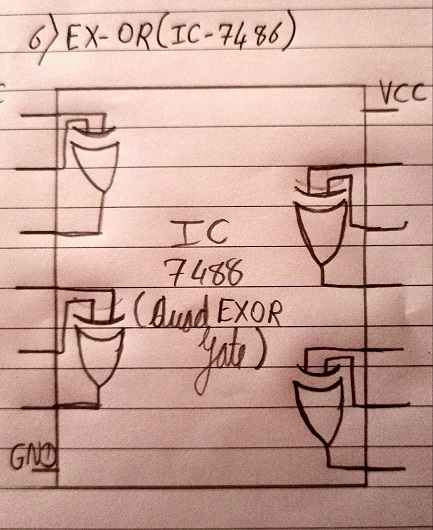 6) EX-OR(IC-7486)
VCC
IC
7488
(Quad EXOR
Gate)
GND